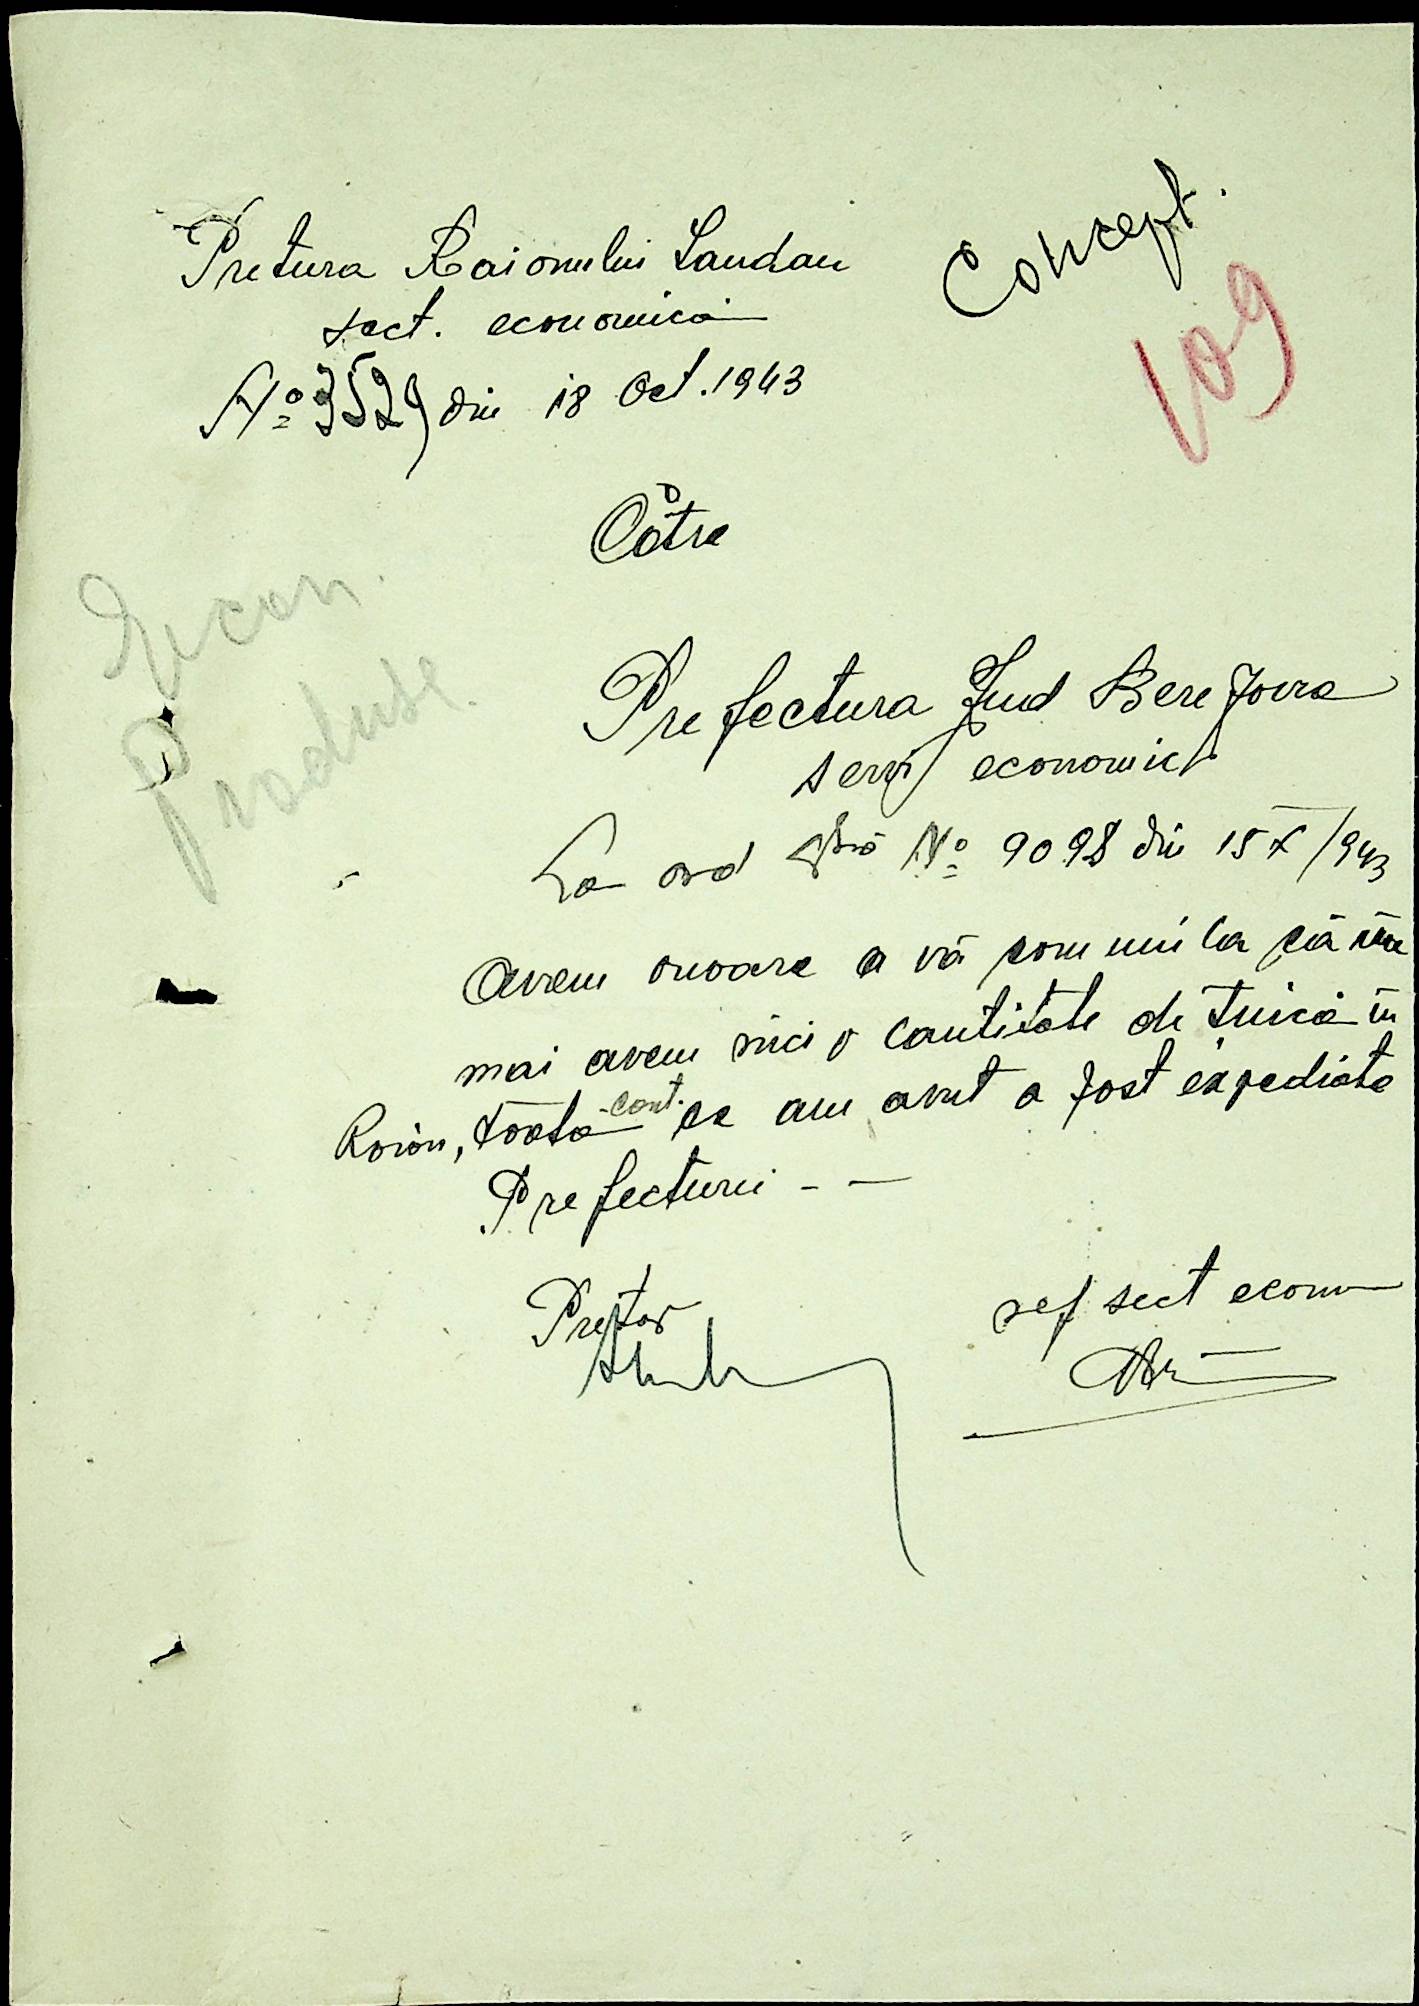 Concept.
109
Pretura Raionului Landau
sect. economică
No 3529 din 18 Oct. 1943
Către
Econ.
Produse.
Prefectura Jud Berezovca
serv economic
La ord No 9098 din 15 X/943
Avem onoare a vă comunica că nu
mai avem nici o cantitate de tuică în
Raion, toată cant. ce am avut a fost expediată
Prefecturii - -
Pretor
sef sect econom